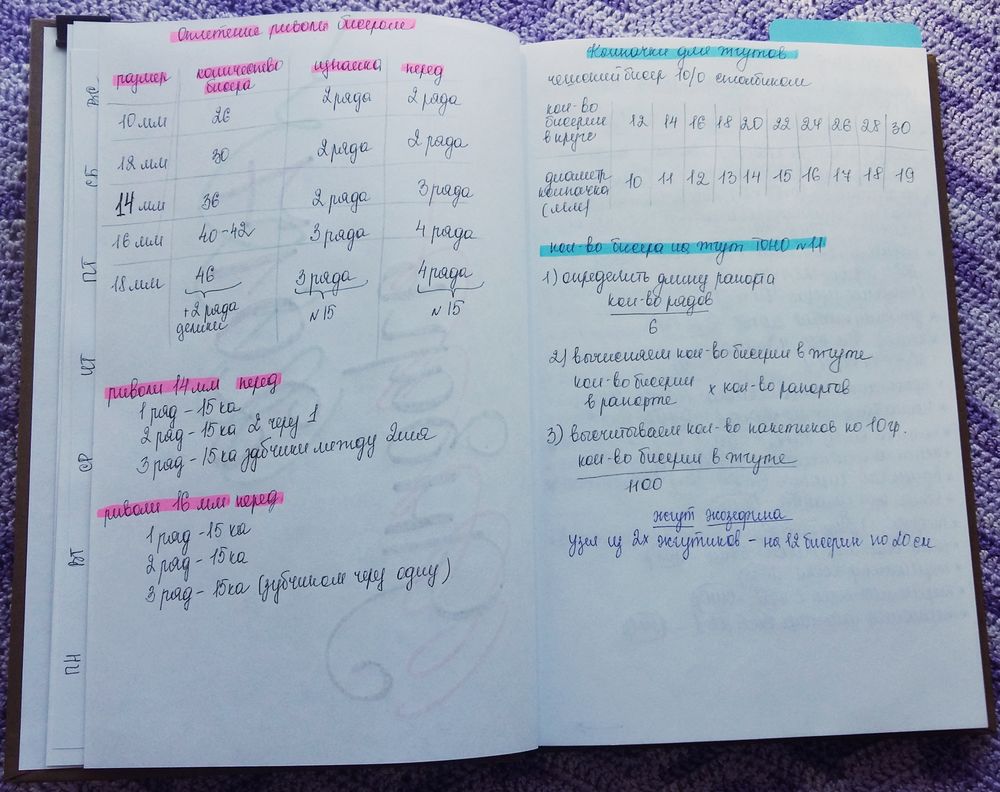 Оплетение риволи бисером
размер количество бисера изнанка перед
10 мм 26 2 ряда 2 ряда
12 мм 30 2 ряда 2 ряда
14 мм 36 2 ряда 3 ряда
16 мм 40-42 3 ряда 4 ряда
18 мм 46 3 ряда 4 ряда
+2 ряда делики N 15 N 15
риволи 14 мм перед
1 ряд - 15ка
2 ряд - 15ка 2 через 1
3 ряд - 15ка зубчики между 2мя
риволи 16 мм перед
1 ряд - 15ка
2 ряд - 15ка
3 ряд - 15ка (зубчиком через одну)
ВС
СБ
ПТ
ЧТ
СР
ВТ
ПН
Колпачки для жгутов
чешский бисер 10/0 столбиком
кол-во бисерин в круге 12 14 16 18 20 22 24 26 28 30
диаметр колпачка (мм) 10 11 12 13 14 15 16 17 18 19
кол-во бисера на жгут ТОНО N 11
1) определить длину рапорта
кол-во рядов
6
2) вычисляем кол-во бисерин в жгуте
кол-во бисерин в рапорте х кол-во рапортов
3) высчитываем кол-во пакетиков по 10гр.
кол-во бисерин в жгуте
1100
жгут жозефина
узел из 2х жгутиков - на 12 бисерин по 20 см